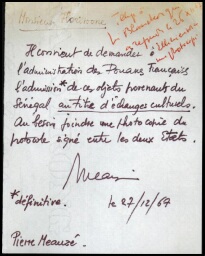 Monsieur
Il convient de demander à
l'administration des Douanes Françaises
l'admission* de ces objets provenants du
Sénégal au titre d'échanges culturels.
Au besoin joindre une photocopie du
protocole signé entre les deux États.
Meauzé
*définitive.
le 27/12/67
Pierre Meauzé.